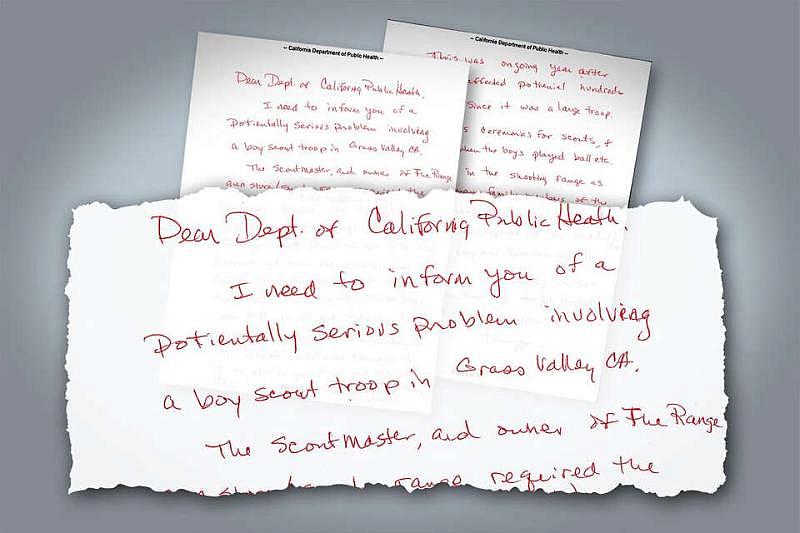 -- California Department of Public Health --
Dear Dept. of California Public Heath.
I need to inform you of a
potientally serious problem involving
a boy scout troop in Grass Valley CA.
The Scoutmaster, and owner of The Range
-- California Department of Public Health --
This was ongoing year after
effected potheniel hundreds
since it was a large troop.
ceremonies for scouts, &
when the boys played ball etc.
in the shooting range as
family members of the
Dear Dept. of California Public Heath.
I need to inform you of a
potientally serious problem involving
a boy scout troop in Grass Valley CA.
The Scoutmaster, and owner of The Range
range required the